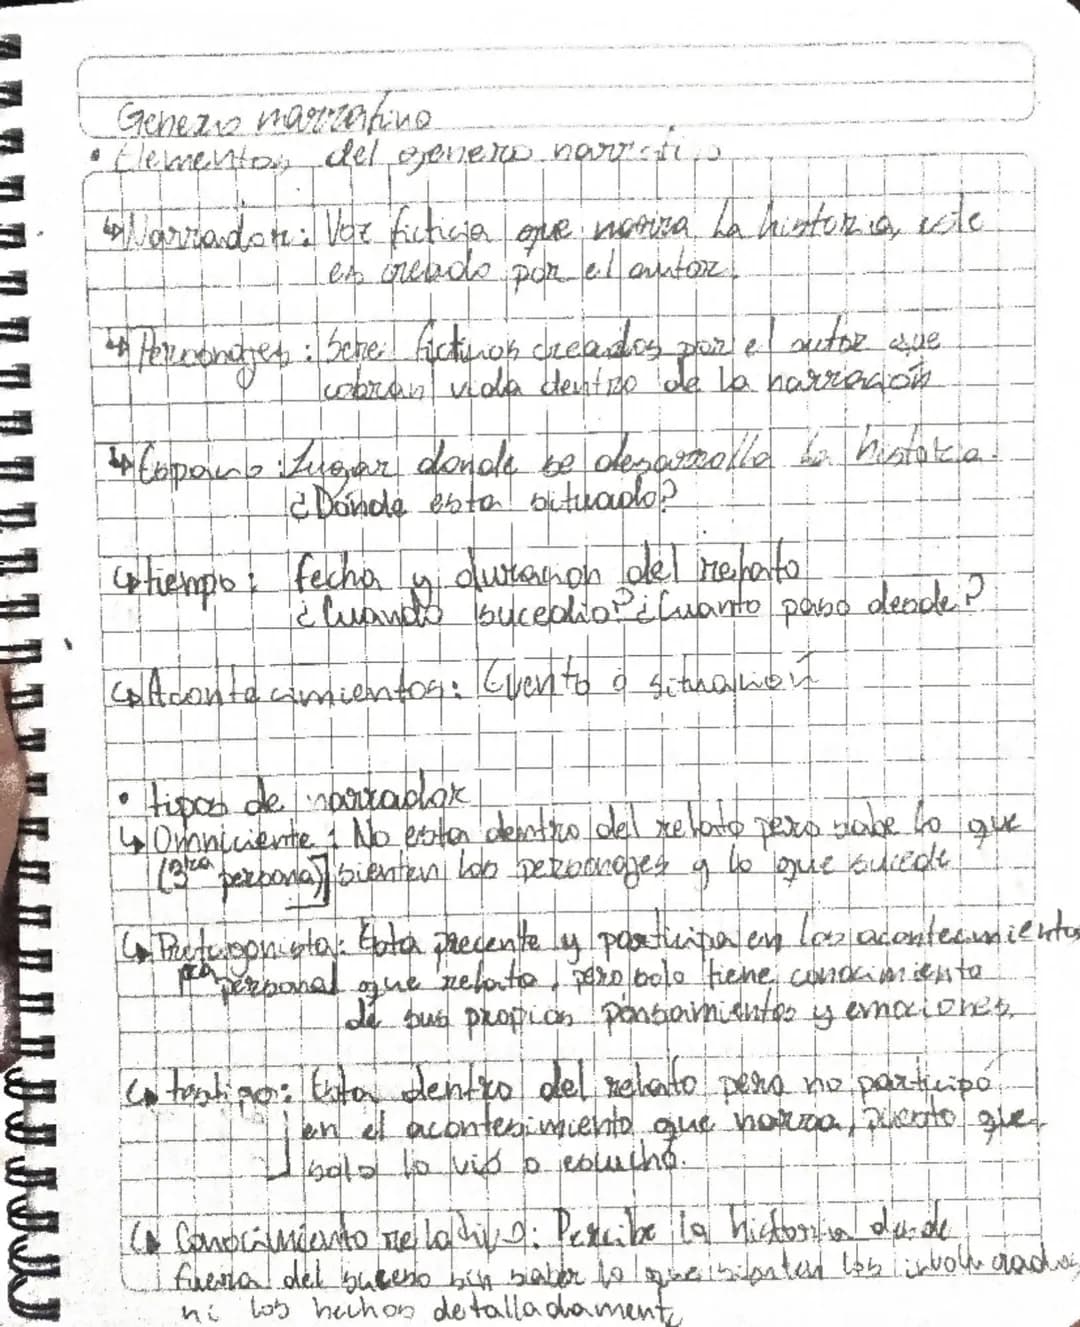 Genero narrativo
• Elementos del genero narrativo
↳ Narrador: Voz ficticia que narra la historia, este
es creado por el autor.
↳ Personajes: Seres ficticios creados por el autor que
cobran vida dentro de la narración
↳ Espacio: Lugar donde se desarrolla la historia.
¿Donde esta situado?
↳ tiempo: fecha y duracion del relato
¿Cuando sucedio? ¿Cuanto paso desde?
↳ Acontecimientos: Evento o situación
• tipos de narrador
↳ Omniciente: No esta dentro del relato pero sabe lo que
(3ra persona) sienten los personajes y lo que sucede
↳ Protagonista: Esta precente y participa en los acontecimientos
personal que relata, pero solo tiene conocimiento
de sus propios pensamientos y emociones.
↳ testigo: Esta dentro del relato pero no participó
en el acontesimiento que narra, puesto que
solo lo vió o escuchó.
↳ Conocimiento relativo: Percibe la historia desde
fuera del suceso sin saber lo que sienten los involucrados
ni los hechos detalladamente